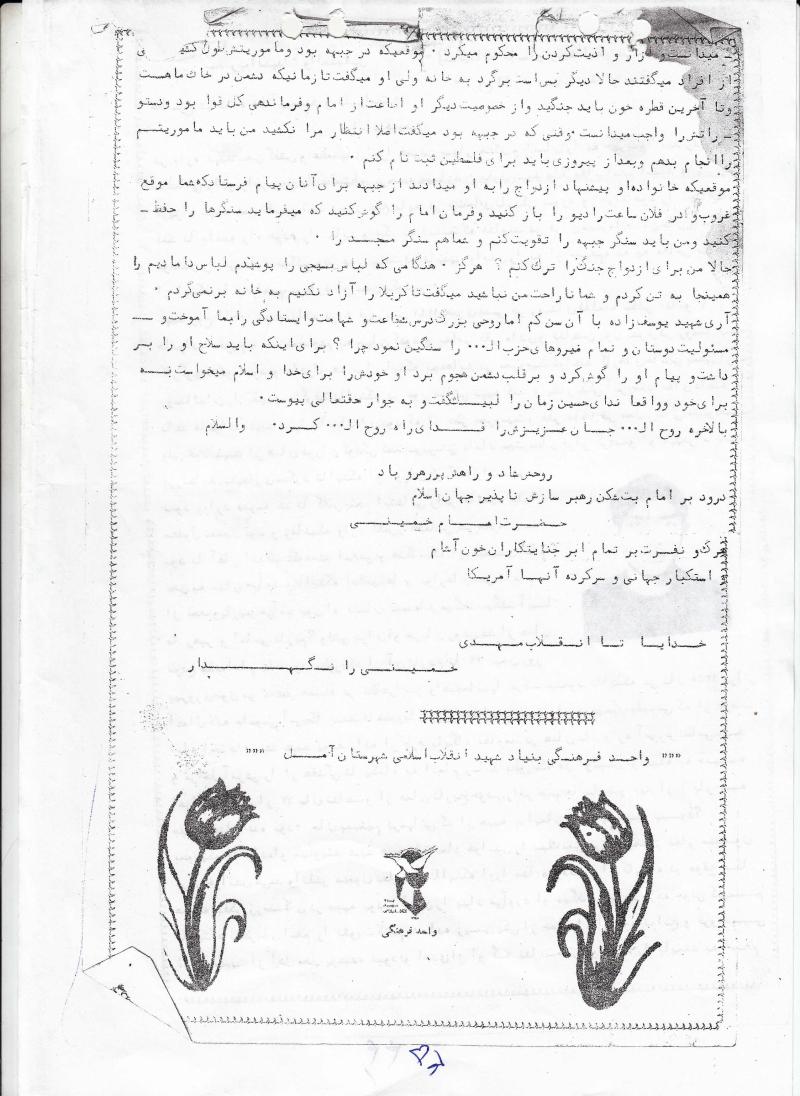 ـ میدانست و آزار و اذیت کردن را محکوم میکرد . موقعیکه در جبهه بود وماموریتش طول کشید
از افراد میگفتند حالا دیگر بس است برگرد به خانه ولی او میگفت تا زمانیکه دشمن در خاک ماهست
وتا آخرین قطره خون باید جنگید واز خصوصیت دیگر او اطاعت از امام وفرماندهی کل قوا بود ودستو
ـ راتش را واجب میدانست . وقتی که در جبهه بود میگفت اصلا انتظار مرا نکشید من باید ماموریتم
را انجام بدهم وبعد از پیروزی باید برای فلسطین ثبت نام کنم .
موقعیکه خانواده او پیشنهاد ازدواج رابه او میدادند از جبهه برای آنان پیام فرستاد که شما موقع
غروب و در فلان ساعت رادیو را باز کنید وفرمان امام را گوش کنید که میفرماید سنگرها را حفظ ـ
کنید ومن باید سنگر جبهه را تقویت کنم و شما هم سنگر مسجد را .
حالا من برای ازدواج جنگ را ترک کنم ؟ هرگز . هنگامی که لباس بسیجی را پوشیدم لباس دامادیم را
همینجا به تن کردم و شما ناراحت من نباشید میگفت تا کربلا را آزاد نکنیم به خانه برنمی گردم .
آری شهید یوسف زاده با آن سن کم اما روحی بزرگ درس شجاعت و شهامت وایستادگی را بما آموخت و ـ
مسئولیت دوستان و تمام نیروهای حزب الـ... را سنگین نمود چرا ؟ برای اینکه باید سلاح او را بر
داشت و پیام او را گوش کرد و بر قلب دشمن هجوم برد او خودش را برای خدا و اسلام میخواست نه
برای خود وواقعا ندای حسین زمان را لبیک گفت و به جوار حقتعالی پیوست .
بالاخره روح الـ... جان عزیزش را فدای راه روح الـ... کرد . والسلام
روحش شاد و راهش پررهرو باد
درود بر امام بت شکن رهبر سازش ناپذیر جهان اسلام
حضرت امام خمینی
مرگ و نفرت بر تمام ابر جنایتکاران خون آشام
و استکبار جهانی و سرکرده آنها آمریکا
خدایا تا انقلاب مهدی
خمینی را نگهدار
"""" واحد فرهنگی بنیاد شهید انقلاب اسلامی شهرستان آمل """"
واحد فرهنگی